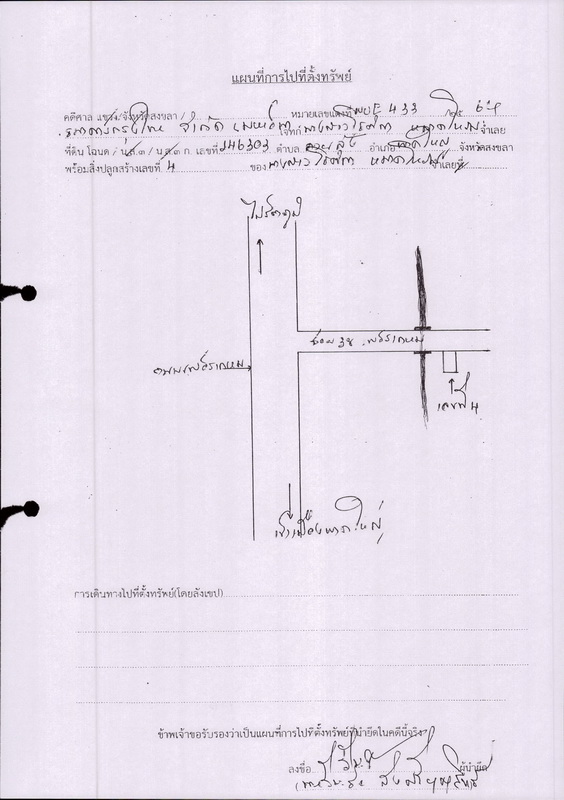 แผนที่การไปที่ตั้งทรัพย์
คดีศาล แขวง/จังหวัดสงขลา / หมายเลขแดงที่ ผบE 433 /๒๕
ธนาคารกรุงไทย จำกัด โจทก์ นางสาว หาดใหญ่ จำเลย
ที่ดิน โฉนด / น.ส.๓ / น.ส.๓ ก. เลขที่ 146303 ตำบล ควนลัง อำเภอ หาดใหญ่ จังหวัดสงขลา
พร้อมสิ่งปลูกสร้างเลขที่ 4 ของ นางสาว จำเลยที่
ไปรัตภูมิ
ซอย 38 เพชรเกษม
ถนนเพชรเกษม
เลขที่ 4
เข้าเมืองหาดใหญ่
การเดินทางไปที่ตั้งทรัพย์(โดยสังเขป)
ข้าพเจ้าขอรับรองว่าเป็นแผนที่การไปที่ตั้งทรัพย์ที่นำยึดในคดีนี้จริง
ลงชื่อ ผู้นำยึด